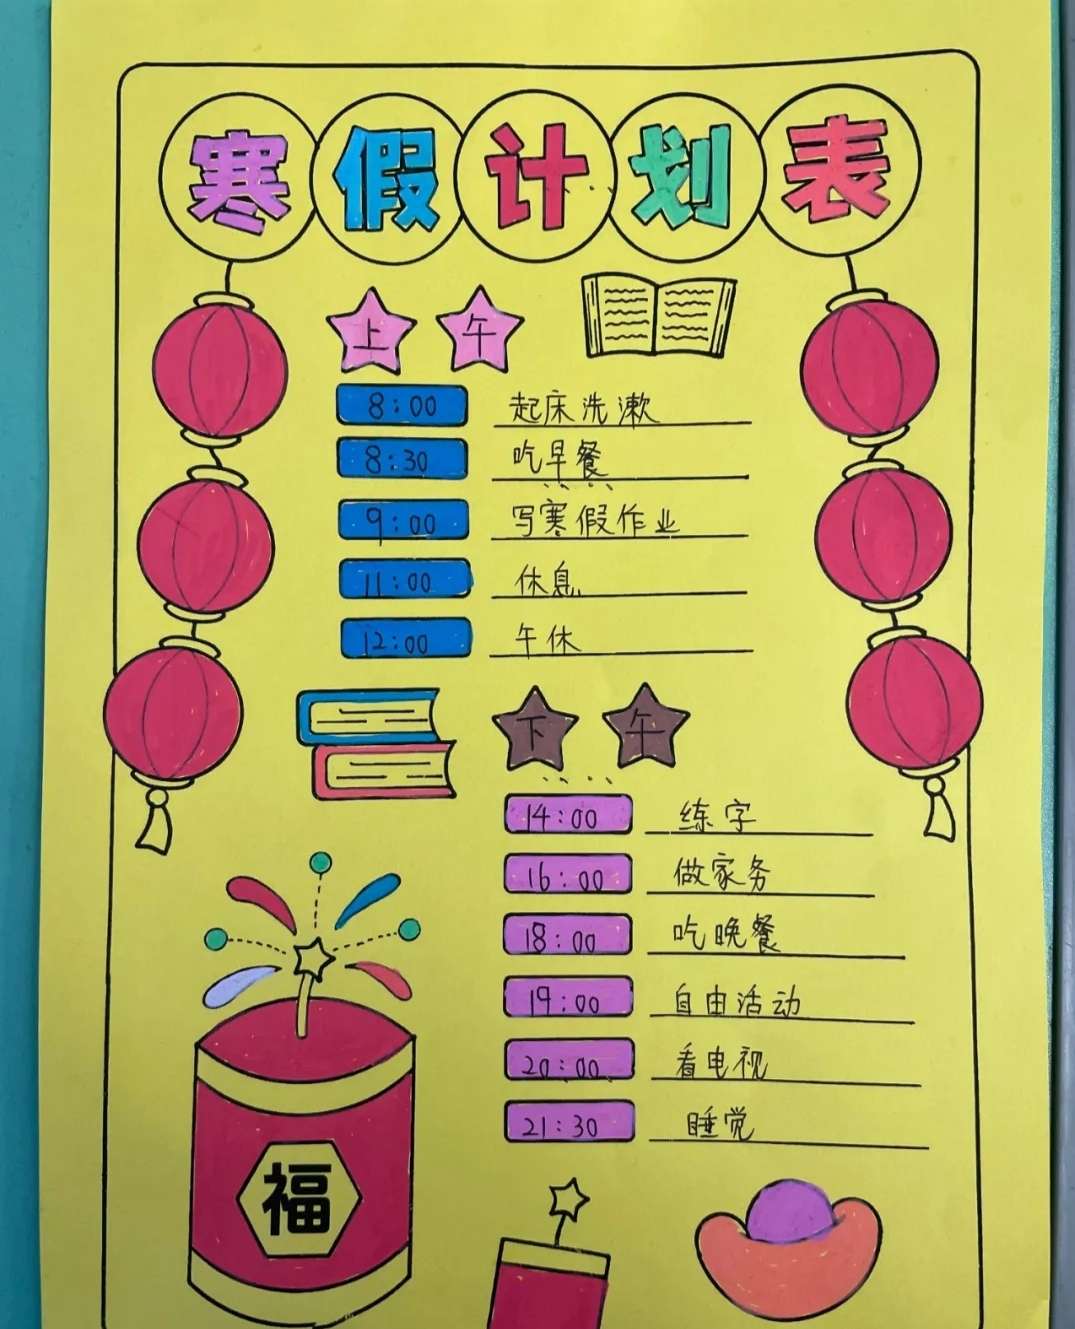 寒假计划表
上午
8:00 起床洗漱
8:30 吃早餐
9:00 写寒假作业
11:00 休息
12:00 午休
下午
14:00 练字
16:00 做家务
18:00 吃晚餐
19:00 自由活动
20:00 看电视
21:30 睡觉
福